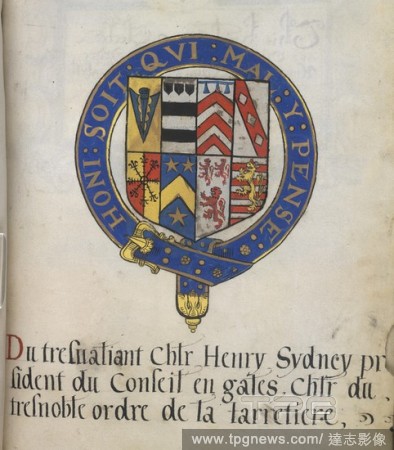 HONI : SOIT : QVI : MAL : Y : PENSE :
Du tresualiant Chlr Henry Sydney pr
sident du Conseil en gales. Chlr du,
tresnoble ordre de la Iarretiere,
www.tpgnews.com/ 達志影像